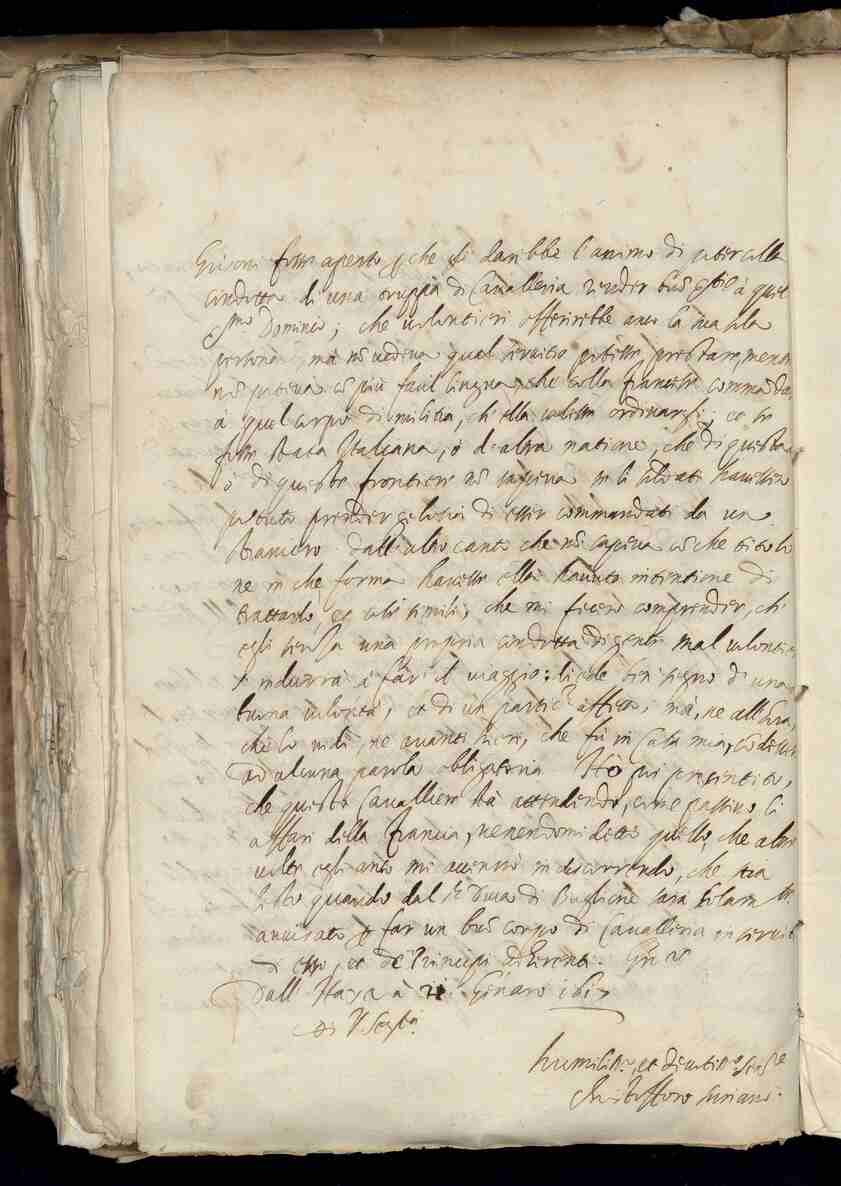 Grisoni fosse aperto, che gli darebbe l'animo di
condotta di una truppa di Cavalleria render buon à quel
Dominio; che volontieri offerirebbe anco la sua sola
persona, mà non vedeva qual servitio potesse prestare, mentre
non poteva con più facil lingua, che colla francese commandar
à quel corpo di militia, ch'ella volesse ordinarsi; et se
fosse stata Italiana, ò d'altra natione, che di questa
ò di queste frontiere non sapeva se li soldati havessero
potuto prender gelosia di esser commandati da un
straniero. Dall'altro canto che non sapeva con che titolo
ne in che forma havesse ella havuto intentione di
trattarlo, et altri simili, che mi fecero comprender, ch'
egli senza una propria condotta di gente mal volontieri
s'indurrà à far il viaggio: diede ben segno di una
buona volontà, et di un partic.r affetto, mà, ne all'hora,
che lo vidi, ne avanti hieri, che fù in Casa mia,
ad alcuna parola obligatoria. Hò poi presentito,
che questo Cavalliere stà attendendo, come passino li
affari della Francia, venendomi detto quello, che altre
volte egli anco mi accennò in discorrendo, che stia
lesto quando dal s.r Duca di Buglione sarà solam.te
avvisato per far un buon corpo di Cavalleria in servitio
di esso, et de Principi di Francia. Gratie
Dall'Haya à Genaro 1617
Di V. Ser.tà
humiliss.o, et devotiss.o ser.re
Christofforo Suriano.